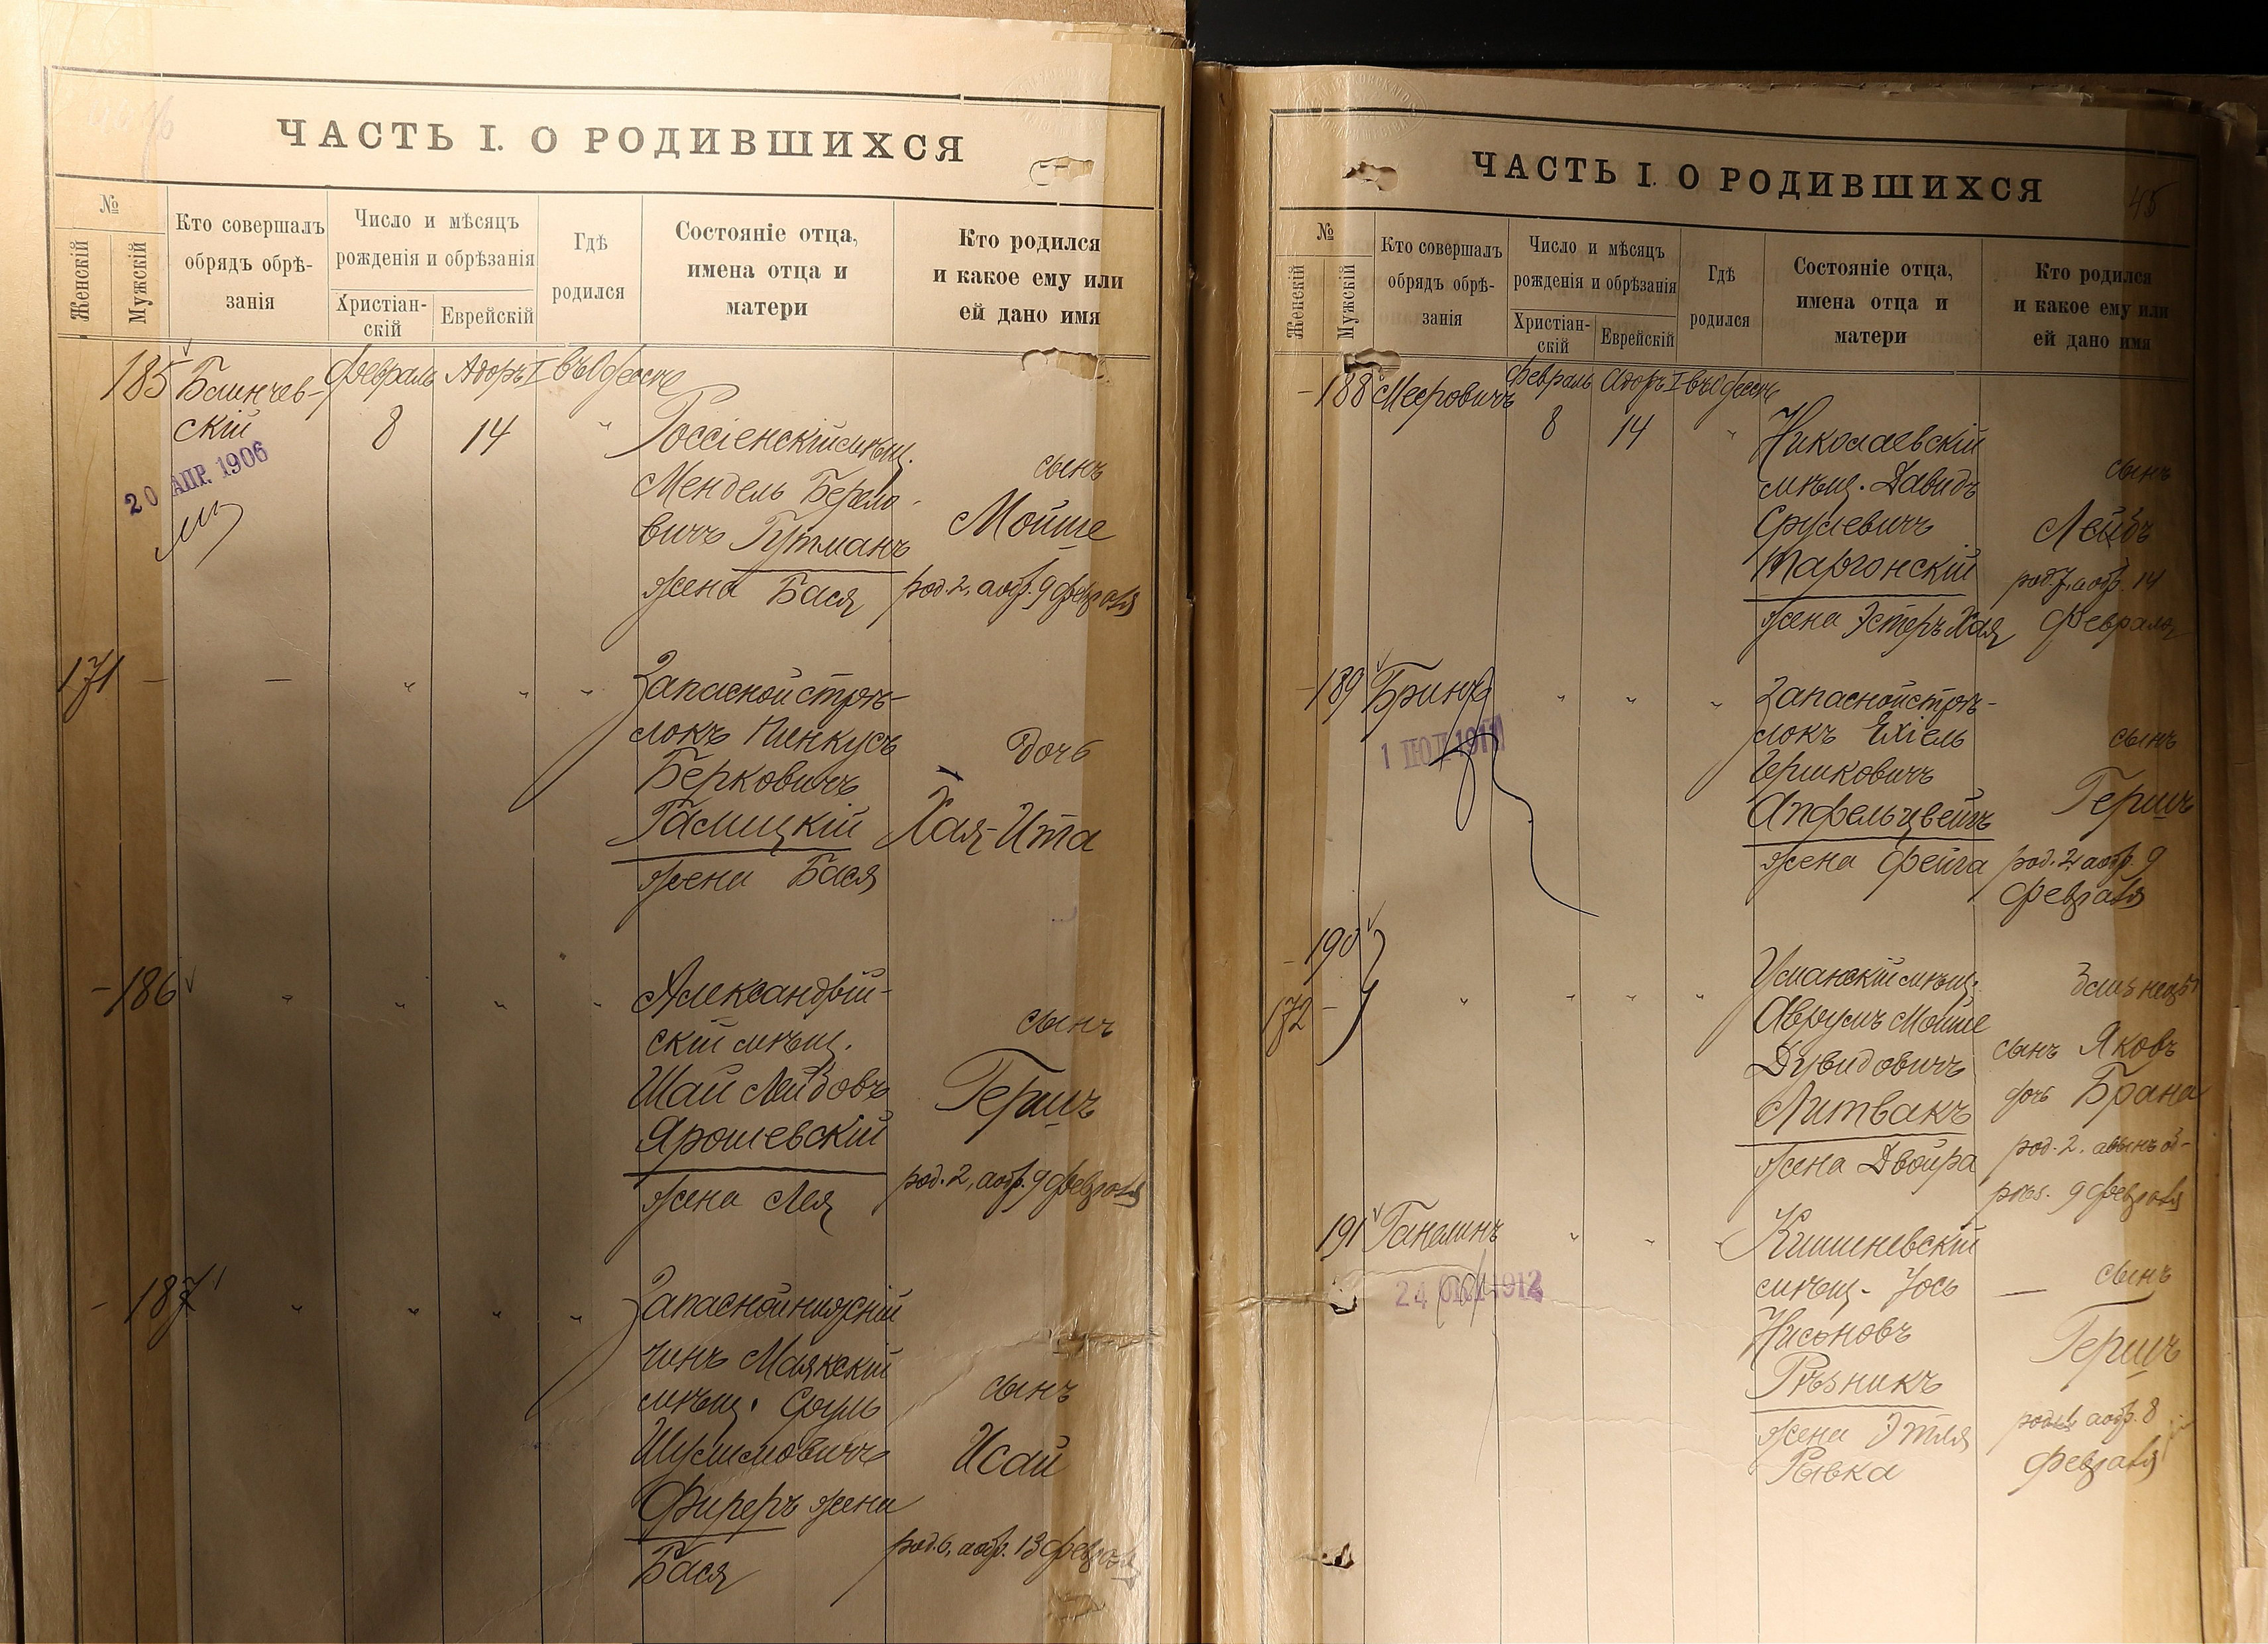 ЧАСТЬ I. О РОДИВШИХСЯ
№
Женскій
Мужскій
Кто совершалъ
обрядъ обрѣ-
занія
Число и мѣсяцъ
рожденія и обрѣзанія
Христіан-
скій
Еврейскій
Гдѣ
родился
Состояніе отца,
имена отца и
матери
Кто родился
и какое ему или
ей дано имя
185 Баинчев- Февраль Адоръ I въ Одессе
скій 8 14 " Россіенскій мѣщ.
20 АПР. 1906
Мендель Берело- сынъ
вичъ Гутманъ Мойше
жена Бася род. 2, а обр. 9 февраля
171 — — " " " Запасной стрѣ-
локъ Пинкусъ дочь
Берковичъ
Галицкій Хая-Ита
жена Бася
186 " " " " Александрій-
скій мѣщ. сынъ
Шай Лейбовъ Гершъ
Ярошевскій
жена Лея род. 2, а обр. 9 февраля
187 " " " " Запасной нижній
чинъ Маякскій
мѣщ. Сруль сынъ
Шулимовичъ Исай
Фиреръ жена
Бася род. 6, а обр. 13 февраля
ЧАСТЬ I. О РОДИВШИХСЯ
45
№
Женскій
Мужскій
Кто совершалъ
обрядъ обрѣ-
занія
Число и мѣсяцъ
рожденія и обрѣзанія
Христіан-
скій
Еврейскій
Гдѣ
родился
Состояніе отца,
имена отца и
матери
Кто родился
и какое ему или
ей дано имя
188 Мееровичъ Февраль Адоръ I въ Одессе
8 14 " Николаевскій
мѣщ. Давидъ сынъ
Срулевичъ Лейбъ
Таргонскій род. 7, а обр. 14
жена Эстеръ Хая февраля
189 Бринъ " " " Запасной стрѣ-
локъ Ехіель сынъ
Гершковичъ Гершъ
Апфельцвейгъ
жена Фейга род. 2, а обр. 9
февраля
190
172 — " " " " Уманскій мѣщ. близнецы
Аврумъ Мойше
Дувидовичъ сынъ Яковъ
Литвакъ дочь Брана
жена Двойра род. 2, а сынъ об-
рѣз. 9 февраля
191 Ганелинъ " " " Кишиневскій
24 1912
мѣщ. Іось — сынъ
Нисоновъ Гершъ
Рѣзникъ
жена Этля а обр. 8
Рывка февраля